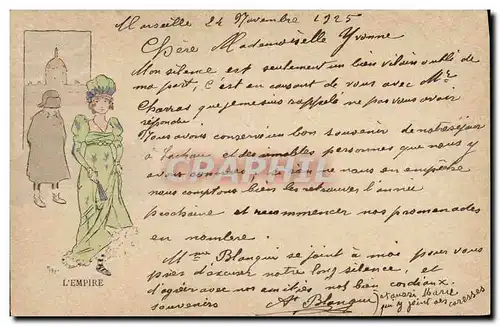 Marseille 24 Novembre 1925
Chère Mademoiselle Yvonne
Mon silence est seulement un bien vilain oubli de
ma part, c'est en causant de vous avec Mr
Charras que je me suis rappelé ne pas vous avoir
répondu!
Nous avons conservé un bon souvenir de notre séjour
à et des aimables personnes que nous y
avons connues, si rien ne nous en empêche
nous comptons bien les retrouver l'année
prochaine et recommencer nos promenades
en nombre.
Mme Blanquin se joint à moi pour vous
prier d'excuser notre long silence, et
d'agréer avec nos amitiés nos bon cordiaux
souvenirs
A. Blanquin
et aussi Marie
qui y joint ses caresses
L'EMPIRE
CPAPHIL